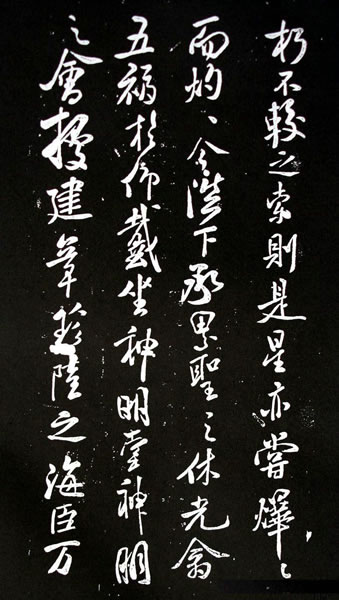 不較之索則是星亦嘗燁々
而灼、今陛下承累聖之休光翕
五福於仰戴坐神明堂神明
之會建章陸之海臣万